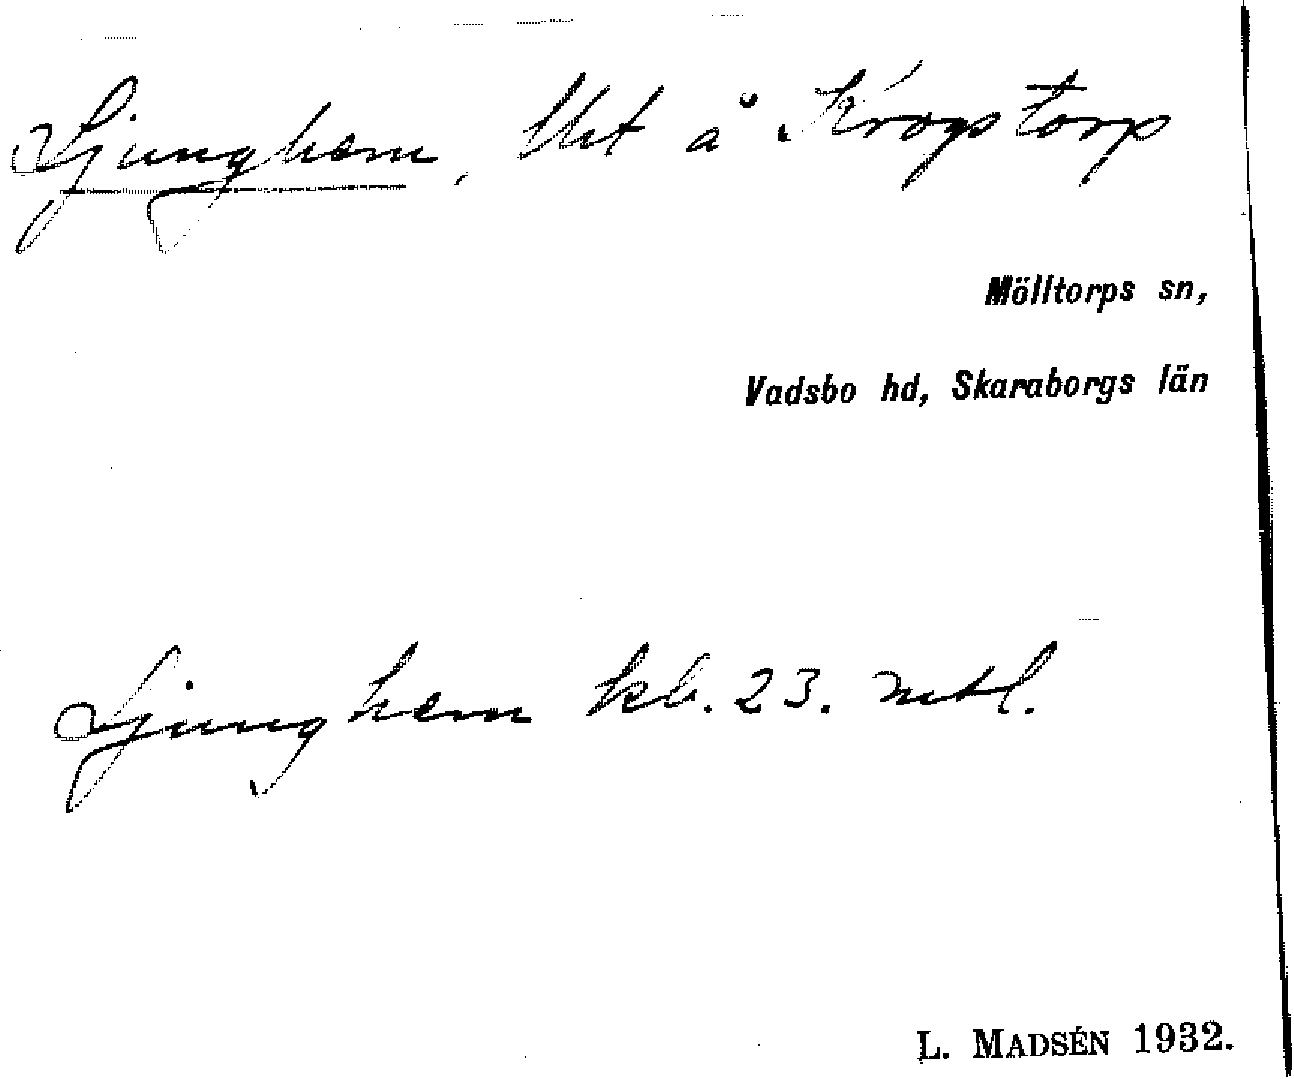 Ljunghem, lht å Krogstorp
Mölltorps sn,
Vadsbo hd, Skaraborgs län
Ljunghem kb. 23. mtl.
L. MADSÉN 1932.